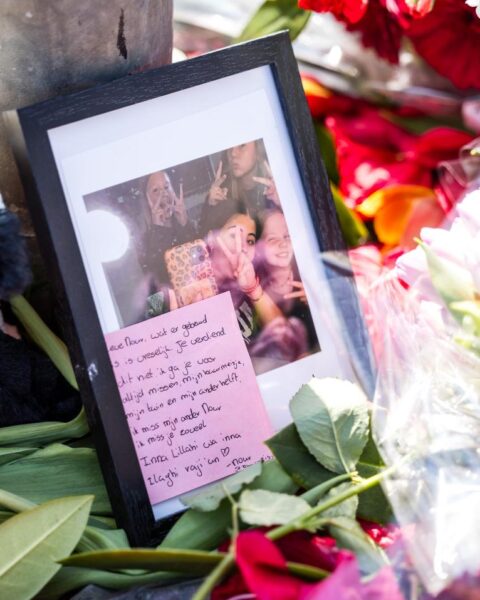 Nour, wat er gebeurd
is is vreselijk. Je verdiend
niet ik ga je voor
altijd missen, mijn buurmeisje,
mijn twin en mijn ander helft.
ik miss mijn ander Nour
ik miss je zoveel
Inna Lillahi wa inna
ilayhi raji'un ♡
-nour